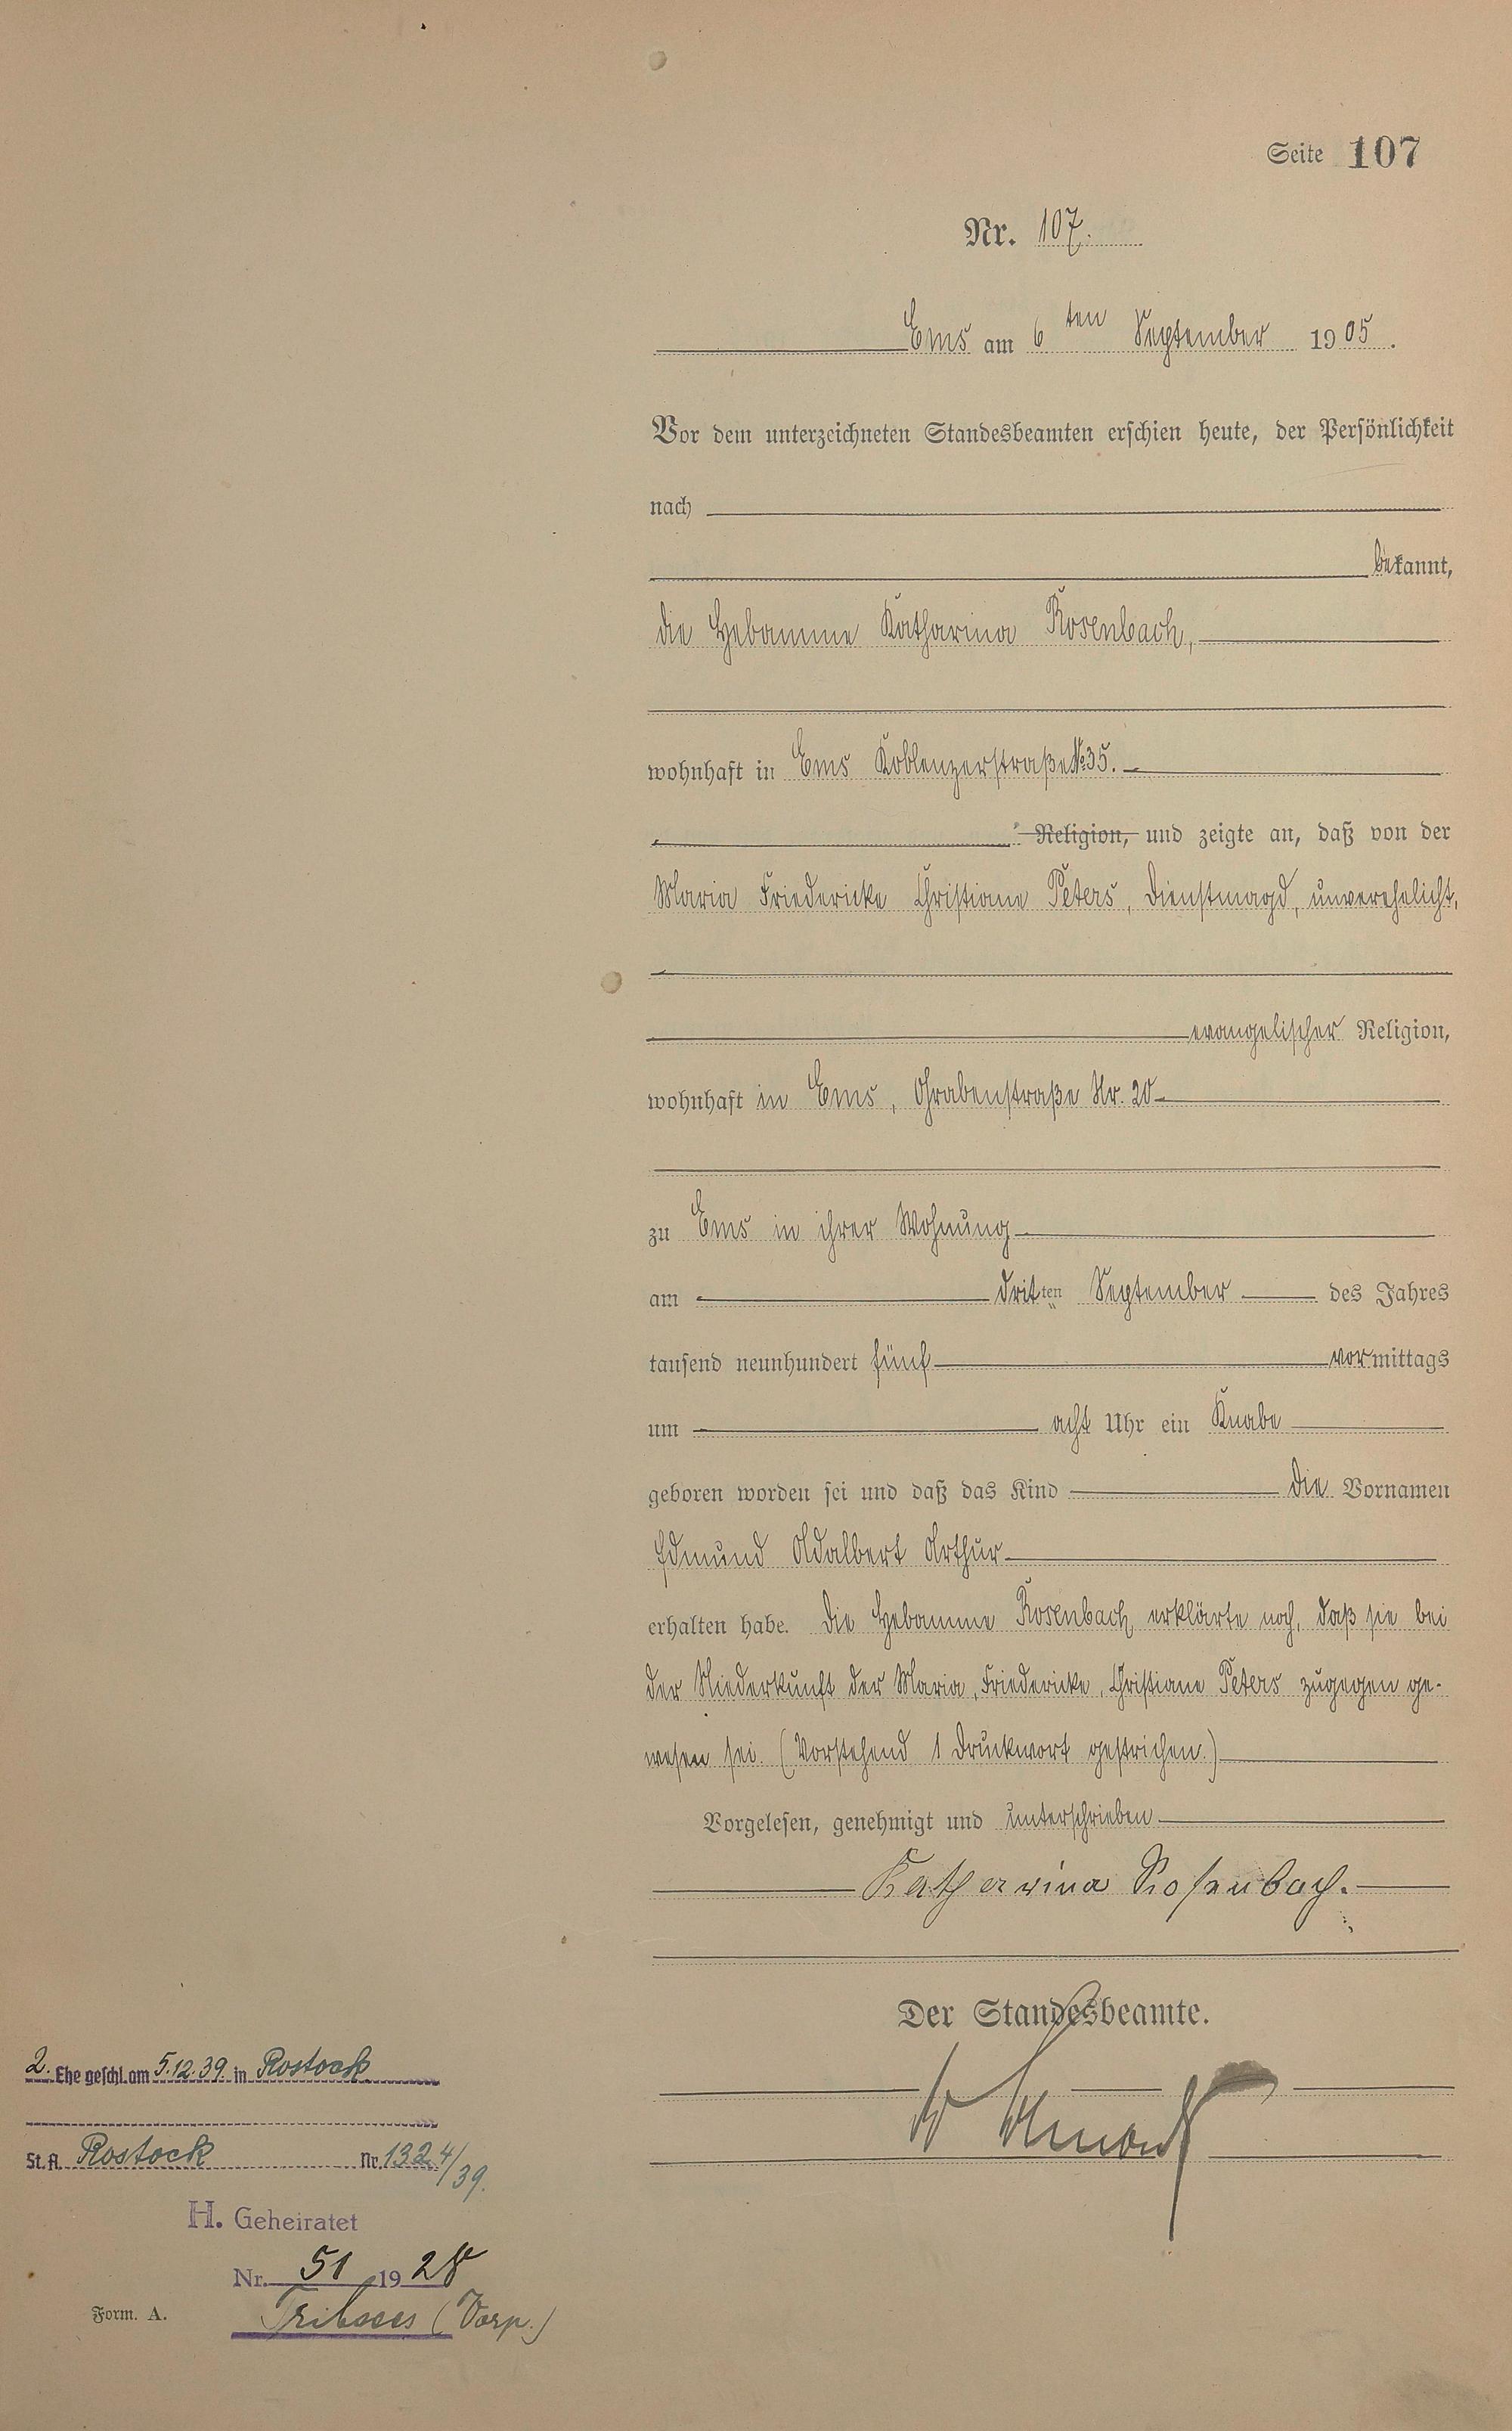 Seite 107
Nr. 107.
Ems am 6ten September 1905.
Vor dem unterzeichneten Standesbeamten erschien heute, der Persönlichkeit
nach
bekannt,
die Hebamme Katharina Rosenbach,
wohnhaft in Ems Koblenzerstraße № 35.
Religion, und zeigte an, daß von der
Maria Friedericke Christiane Peters, Dienstmagd, unverehelicht,
evangelischer Religion,
wohnhaft in Ems, Grabenstraße Nr. 20
zu Ems in ihrer Wohnung
am dritten September des Jahres
tausend neunhundert fünf vormittags
um acht Uhr ein Knabe
geboren worden sei und daß das Kind die Vornamen
Edmund Adalbert Arthur
erhalten habe. Die Hebamme Rosenbach erklärte noch, daß sie bei
der Niederkunft der Maria, Friedericke, Christiane Peters zugegen ge-
wesen sei. (Vorstehend 1 Druckwort gestrichen.)
Vorgelesen, genehmigt und unterschrieben
Katharina Rosenbach.
Der Standesbeamte.
2. Ehe geschl. am 5.12.39. in Rostock
St. A. Rostock Nr. 1324/39.
H. Geheiratet
Nr. 51 1928
Tribsees (Vorp.)
Form. A.